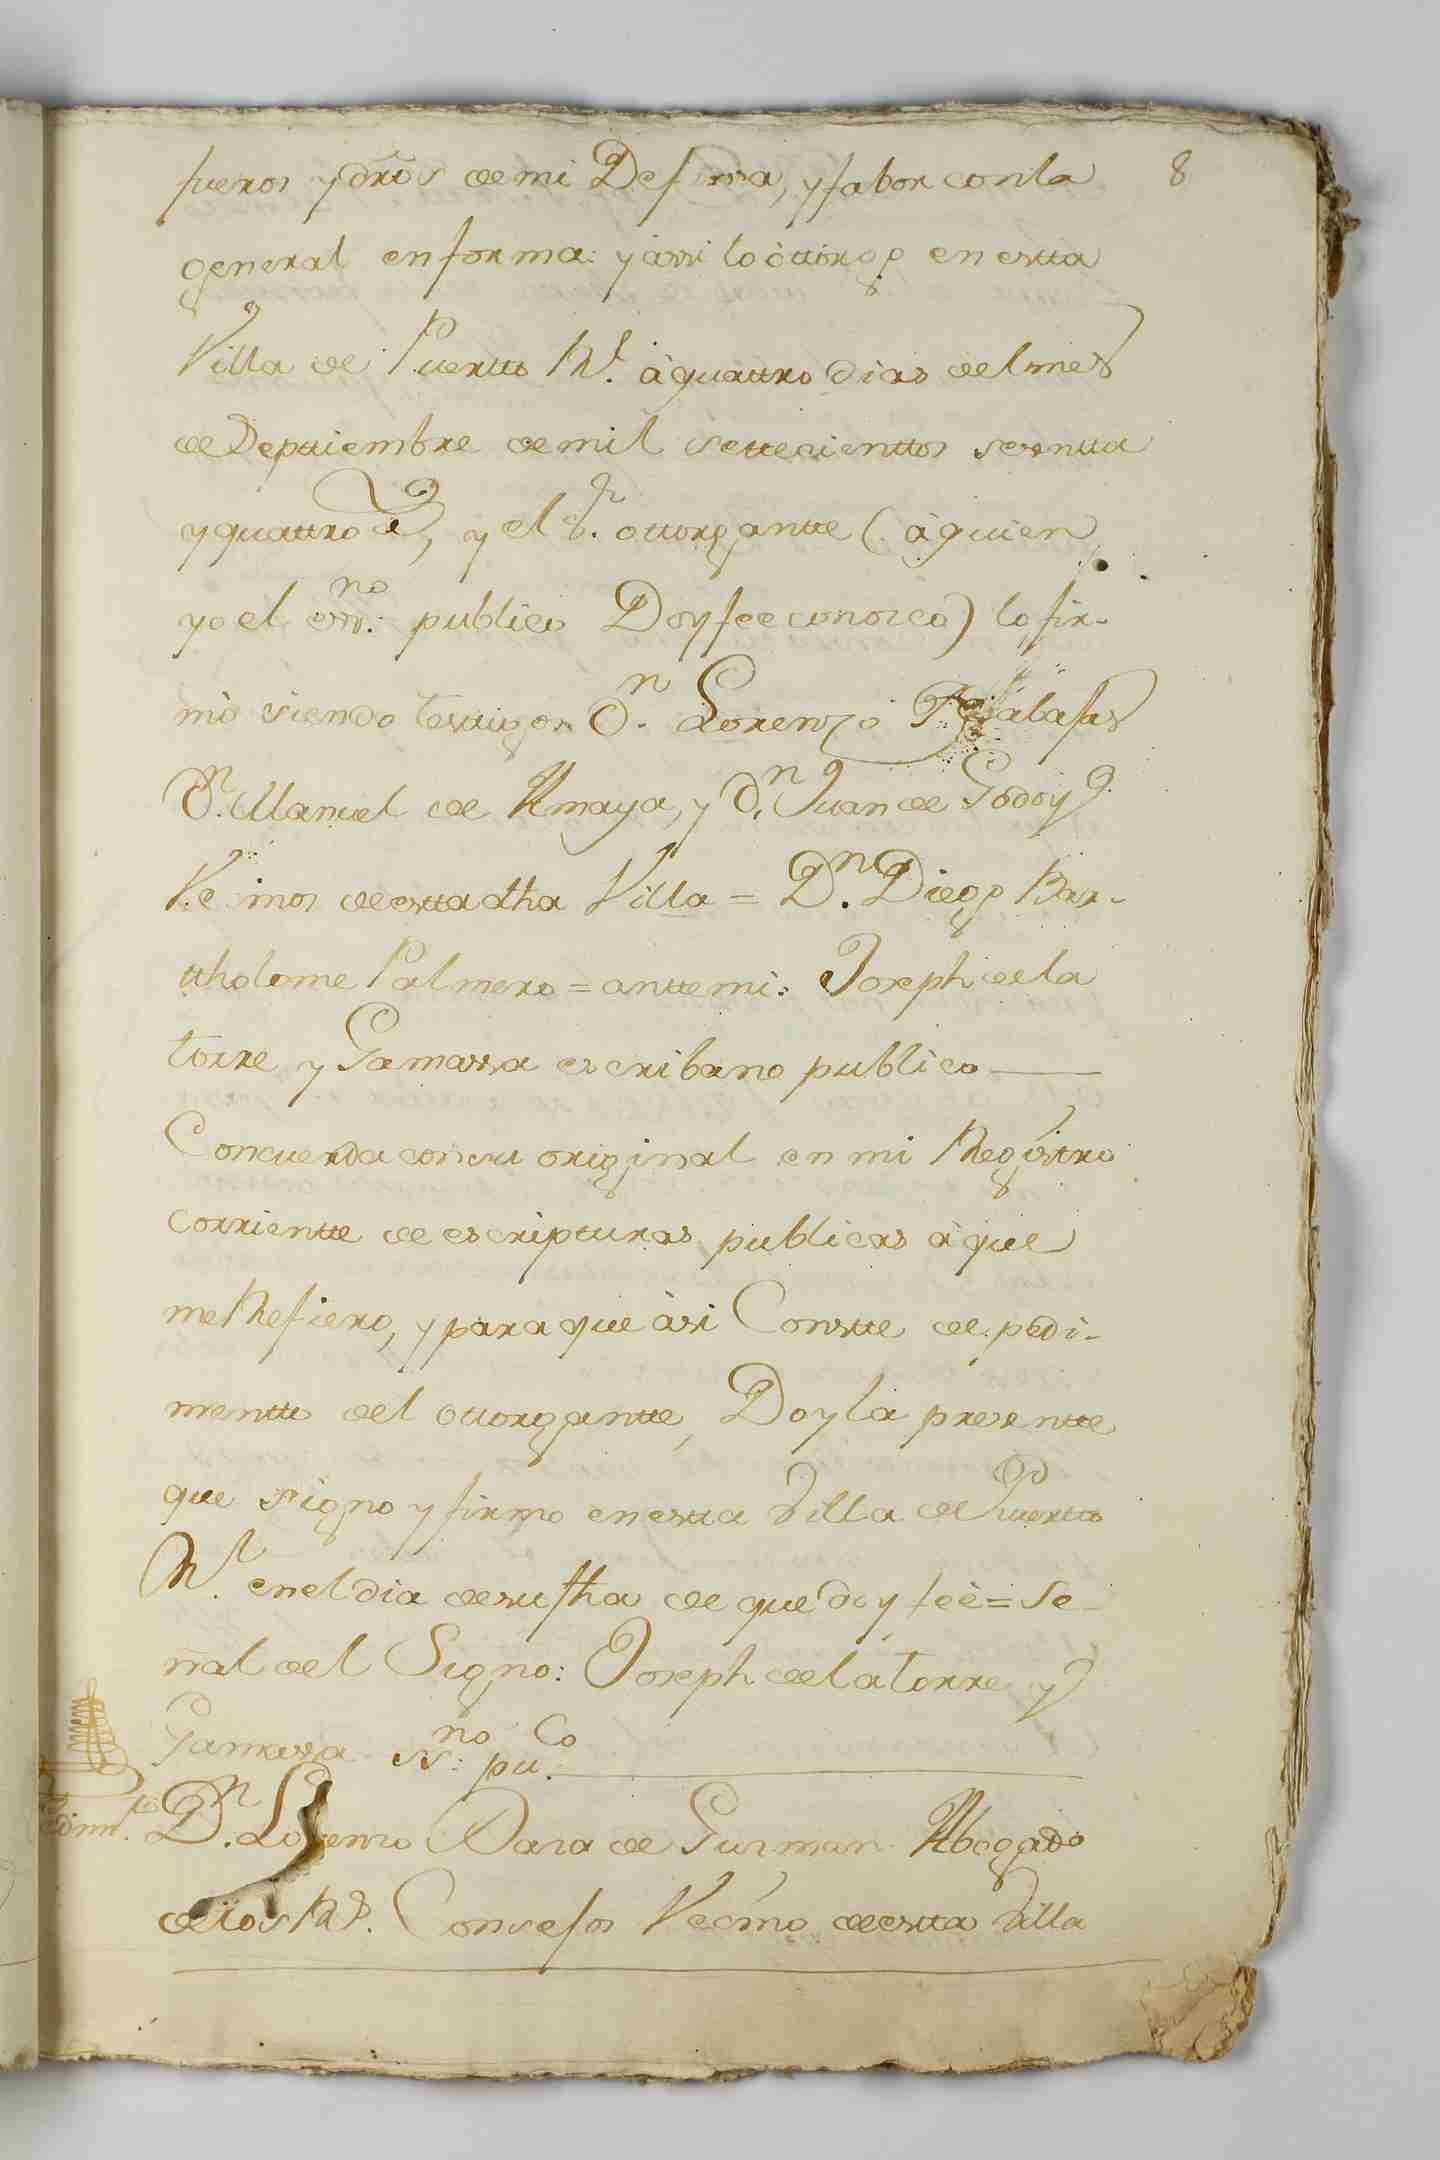 8
fueros y dr̃os de mi Defensa, y fabor con la
general en forma: y assi lo òttorgo en estta
Villa de Puertto Rl. à quattro dias del mes
de Septtiembre de mil settecienttos sesentta
y quattro as, y el Sr. ottorgantte (à quien
yo el essno. publico Doy fee conosco) lo fir-
mò siendo testtigos Dn. Lorenzo Rabasas
Dn. Manuel de Amaya, y Dn. Juan de Godoy
Vecinos de estta dha Villa = Dn. Diego Bar-
ttholome Palmero = antte mi: Joseph de la
torre y Gamassa escribano publico
Concuerda con su original en mi Registro
corrientte de escripturas publicas à que
me Refiero, y para que àsi Constte de pedi-
mentto del ottorgantte, Doy la presentte
que signo y firmo en estta Villa de Puertto
Rl. en el dia de su fha de que doy feè = Se-
ñal del Signo: Joseph de la torre y
Gamassa ssno. puco.
Pedimto.
Dn. Lorenzo Daza de Gusman Abogado
de los Rs. Consejos Vecino de estta Villa